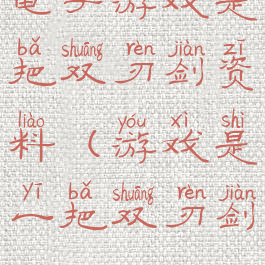 电子游戏是
bǎ shuāng rèn jiàn zī
把双刃剑资
liào yóu xì shì
料（游戏是
yī bǎ shuāng rèn jiàn
一把双刃剑